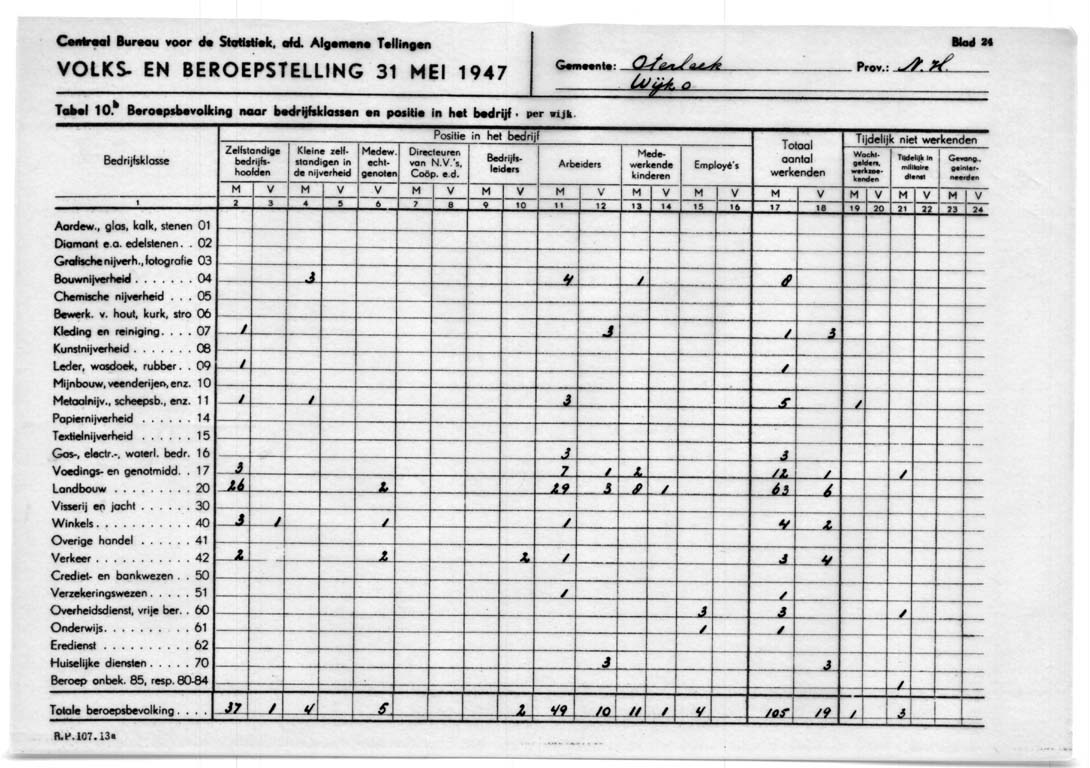 Centraal Bureau voor de Statistiek, afd. Algemene Tellingen
Blad 24
VOLKS- EN BEROEPSTELLING 31 MEI 1947
Gemeente: Oterleek Prov.: N.H.
Wijk 0
Tabel 10.b Beroepsbevolking naar bedrijfsklassen en positie in het bedrijf - per wijk.
Bedrijfsklasse
Positie in het bedrijf
Totaal aantal werkenden
Tijdelijk niet werkenden
Zelfstandige bedrijfs- hoofden
Kleine zelf- standigen in de nijverheid
Medew. echt- genoten
Directeuren van N.V.'s, Coöp. e.d.
Bedrijfs- leiders
Arbeiders
Mede- werkende kinderen
Employé's
Wacht- gelders, werkzoe- kenden
Tijdelijk in militaire dienst
Gevang., geïnter- neerden
M V M V V M V M V M V M V M V M V M V M V M V
1 2 3 4 5 6 7 8 9 10 11 12 13 14 15 16 17 18 19 20 21 22 23 24
Aardew., glas, kalk, stenen 01
Diamant e.a. edelstenen . . 02
Grafische nijverh., fotografie 03
Bouwnijverheid . . . . . . . 04 3 4 1 8
Chemische nijverheid . . . 05
Bewerk. v. hout, kurk, stro 06
Kleding en reiniging . . . . 07 1 3 1 3
Kunstnijverheid . . . . . . . 08
Leder, wasdoek, rubber . . 09 1 1
Mijnbouw, veenderijen, enz. 10
Metaalnijv., scheepsb., enz. 11 1 1 3 5 1
Papiernijverheid . . . . . . 14
Textielnijverheid . . . . . . 15
Gas-, electr.-, waterl. bedr. 16 3 3
Voedings- en genotmidd. . 17 3 7 1 2 12 1 1
Landbouw . . . . . . . . . 20 26 2 29 3 8 1 63 6
Visserij en jacht . . . . . . 30
Winkels . . . . . . . . . . . 40 3 1 1 1 4 2
Overige handel . . . . . . 41
Verkeer . . . . . . . . . . . 42 2 2 2 1 3 4
Crediet- en bankwezen . . 50
Verzekeringswezen . . . . . 51 1 1
Overheidsdienst, vrije ber. . 60 3 3 1
Onderwijs . . . . . . . . . . 61 1 1
Eredienst . . . . . . . . . . 62
Huiselijke diensten . . . . . 70 3 3
Beroep onbek. 85, resp. 80-84 1
Totale beroepsbevolking . . . . 37 1 4 5 2 49 10 11 1 4 105 19 1 3
R.P.107.13a